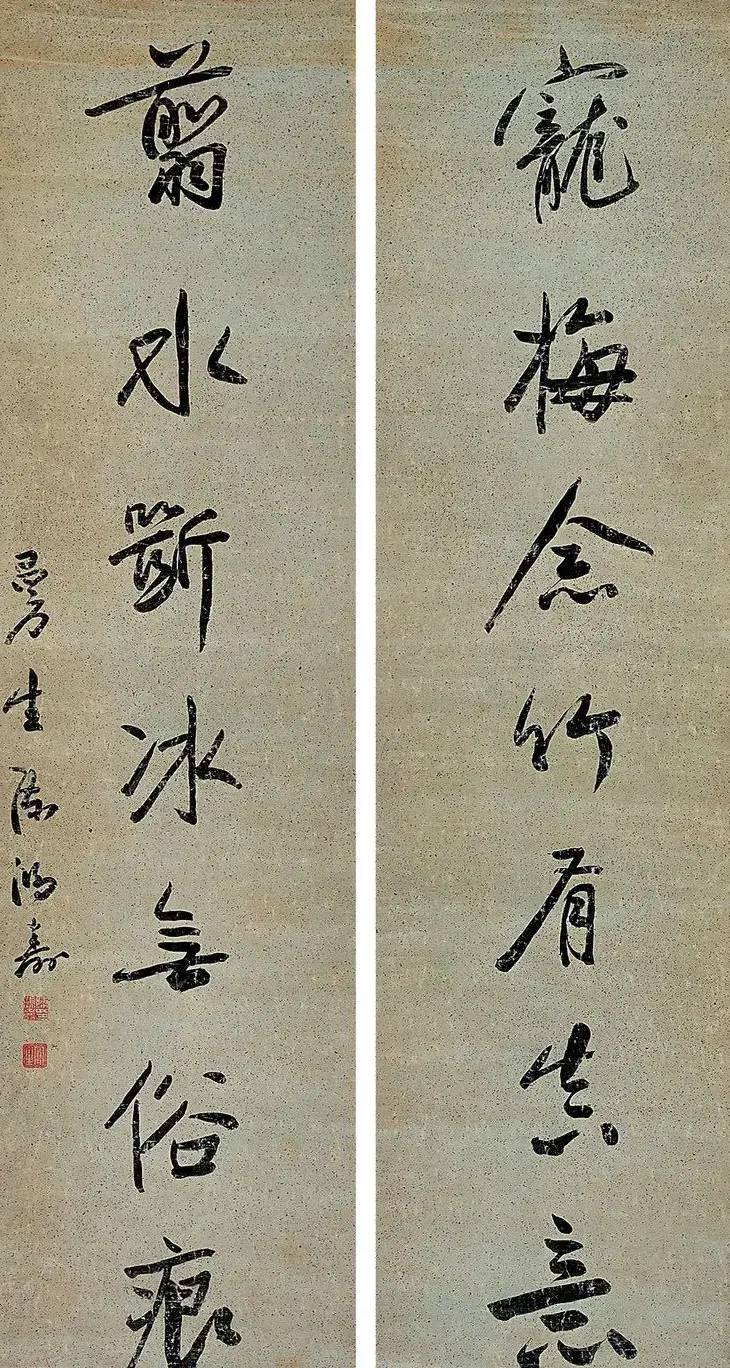 寵梅念竹有真意
翦水斲冰無俗痕
曼生陳鴻壽